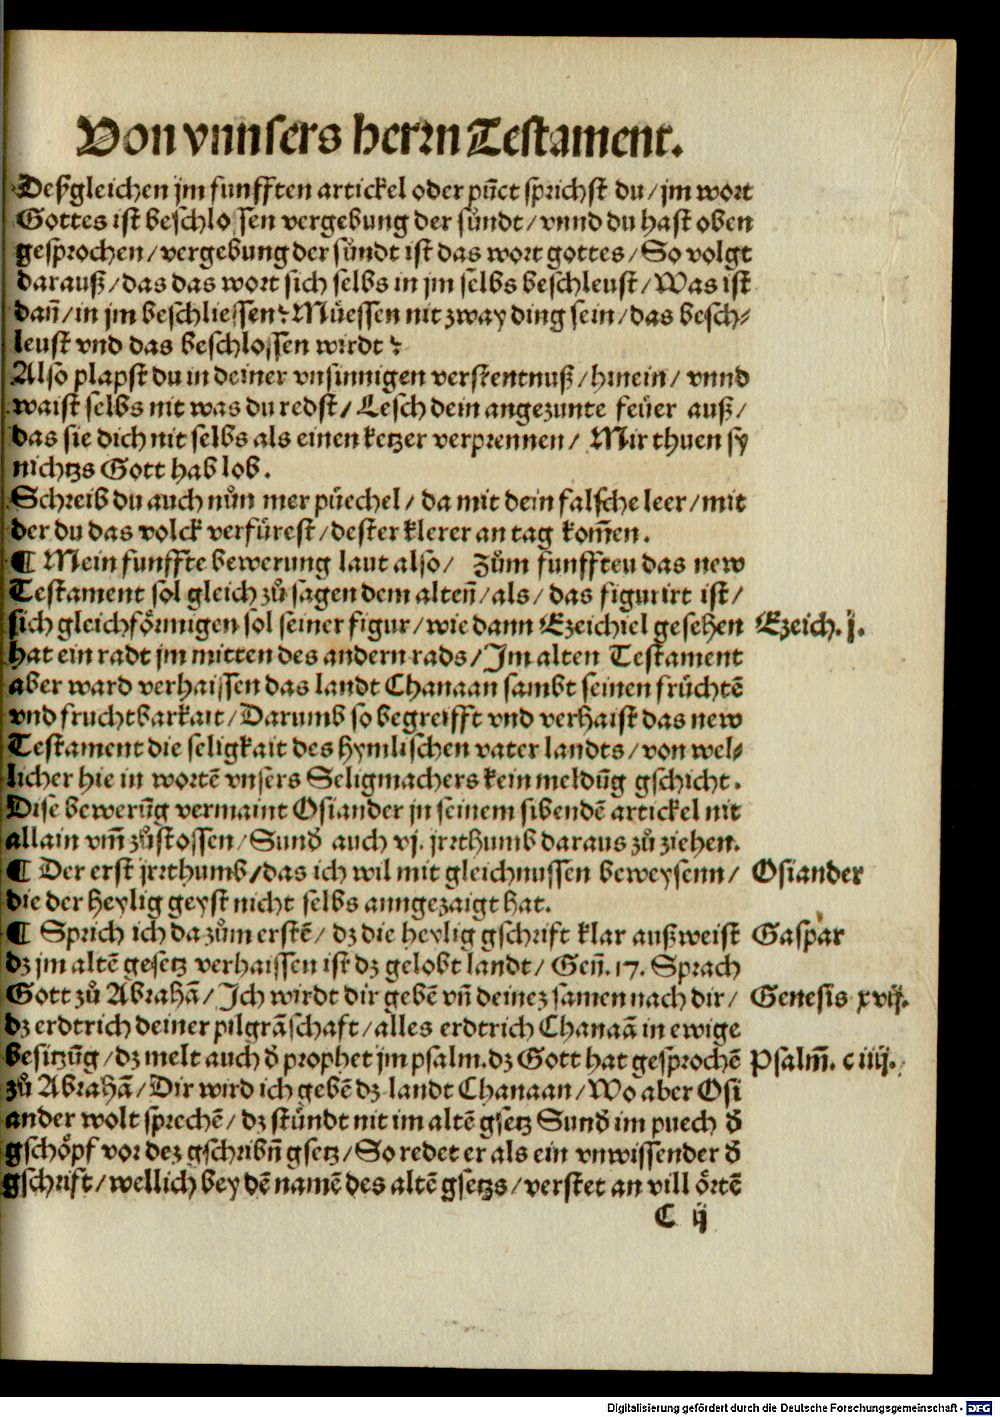 Von vnnsers herrn Testament.
Deßgleichen jm funfften artickel oder pūct sprichst du/ jm wort
Gottes ist beschlossen vergebung der sůndt/ vnnd du hast oben
gesprochen/ vergebung der sůndt ist das wort gottes/ So volgt
darauß/ das das wort sich selbs in jm selbs beschleust/ Was ist
dañ/ in jm beschliessen? Můessen nit zway ding sein/ das besch⸗
leust vnd das beschlossen wirdt?
Also plapst du in deiner vnsinnigen verstentnuß/ hinein/ vnnd
waist selbs nit was du redst/ Lesch dein angezunte feůer auß/
das sie dich nit selbs als einen ketzer verprennen/ Mir thuen sy
nichtzs Gott hab lob.
Schreib du auch nůn mer půechel/ da mit dein falsche leer/ mit
der du das volck verfůrest/ dester klerer an tag kom̄en.
¶ Mein funffte bewerung laut also/ Zům funfften das new
Testament sol gleich zů sagen dem alten̄/ als/ das figurirt ist/
sich gleichförmigen sol seiner figur/ wie dann Ezeichiel gesehen
Ezeich. j.
hat ein radt jm mitten des andern rads/ Im alten Testament
aber ward verhaissen das landt Chanaan sambt seinen frůchtē
vnd fruchtbarkait/ Darumb so begreifft vnd verhaist das new
Testament die seligkait des hymlischen vater landts/ von wel⸗
licher hie in wortē vnsers Seligmachers kein meldūg gschicht.
Dise bewerūg vermaint Osiander jn seinem sibendē artickel nit
allain vm̄ zůstossen/ Sund̄ auch vj. jrrthumb daraus zů ziehen.
¶ Der erst jrrthumb/ das ich wil mit gleichnussen beweysenn/
Osiander
die der heylig geyst nicht selbs anngezaigt hat.
¶ Sprich ich da zům erstē/ dz die heylig gschrift klar außweist
Gaspar
dz jm altē gesetz verhaissen ist dz gelobt landt/ Gen̄. 17. Sprach
Gott zů Abrahā/ Ich wirdt dir gebē vn̄ deinez samen nach dir/
Genesis xvij.
dz erdtrich deiner pilgrāschaft/ alles erdtrich Chanaā in ewige
besitzūg/ dz melt auch d̄ prophet jm psalm. dz Gott hat gesprochē
Psalm̄. ciiij.
zů Abrahā/ Dir wird ich gebē dz landt Chanaan/ Wo aber Osi
ander wolt sprechē/ dz stůndt nit im altē gsetz Sund̄ im puech d̄
gschöpf vor dez gschribn̄ gsetz/ So redet er als ein vnwissender d̄
gschrift/ wellich bey dē namē des altē gsetzs/ verstet an vill örtē
C ij
Digitalisierung gefördert durch die Deutsche Forschungsgemeinschaft - DFG